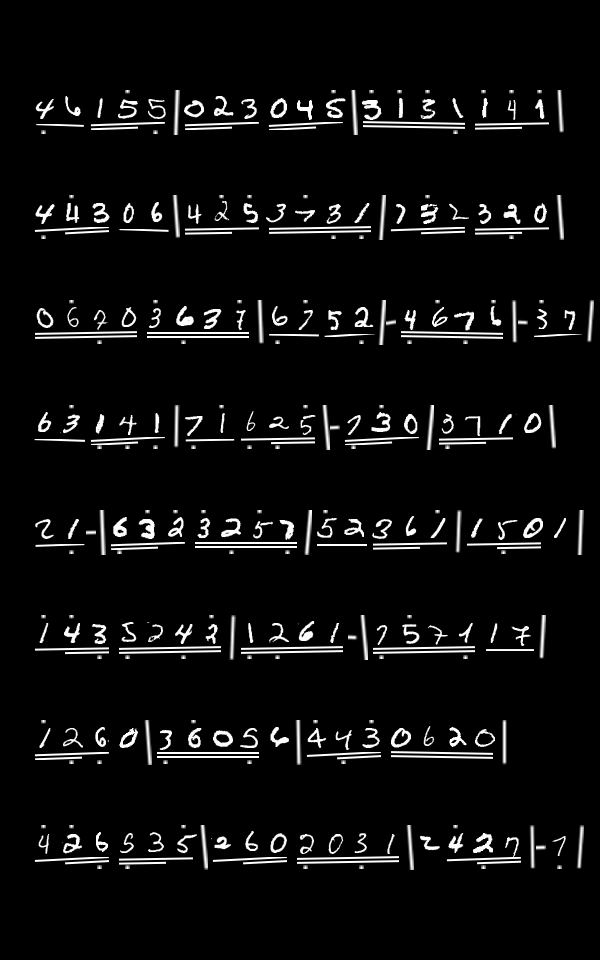 46155|023045|3131141
44306|4253731|732320
06703637|6752|-4676|-37
63141|71625|-730|3710
21-|6323257|52361|1501
1435242|1261-|757117
1260|36056|430620
426535|2602031|2427|-7